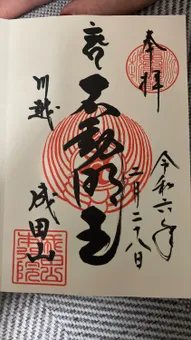 奉拝
令和六年
二月二十八日
不動明王
川越
成田山